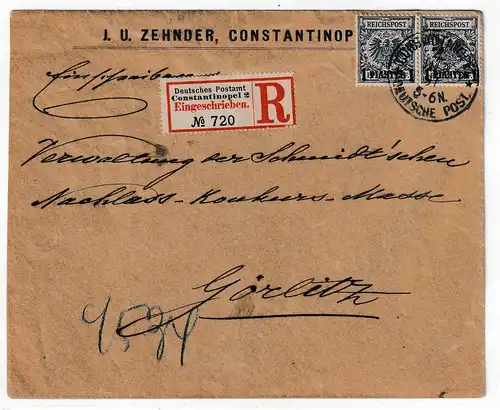 J. U. ZEHNDER, CONSTANTINOP
REICHSPOST REICHSPOST
1 PIASTER 1 PIASTER
5-6N.
DEUTSCHE POST
Einschreiben
Deutsches Postamt
Constantinopel 2
Eingeschrieben.
№ 720
R
Verwaltung der Schmidt'schen
Nachlass-Konkurs-Masse
Görlitz